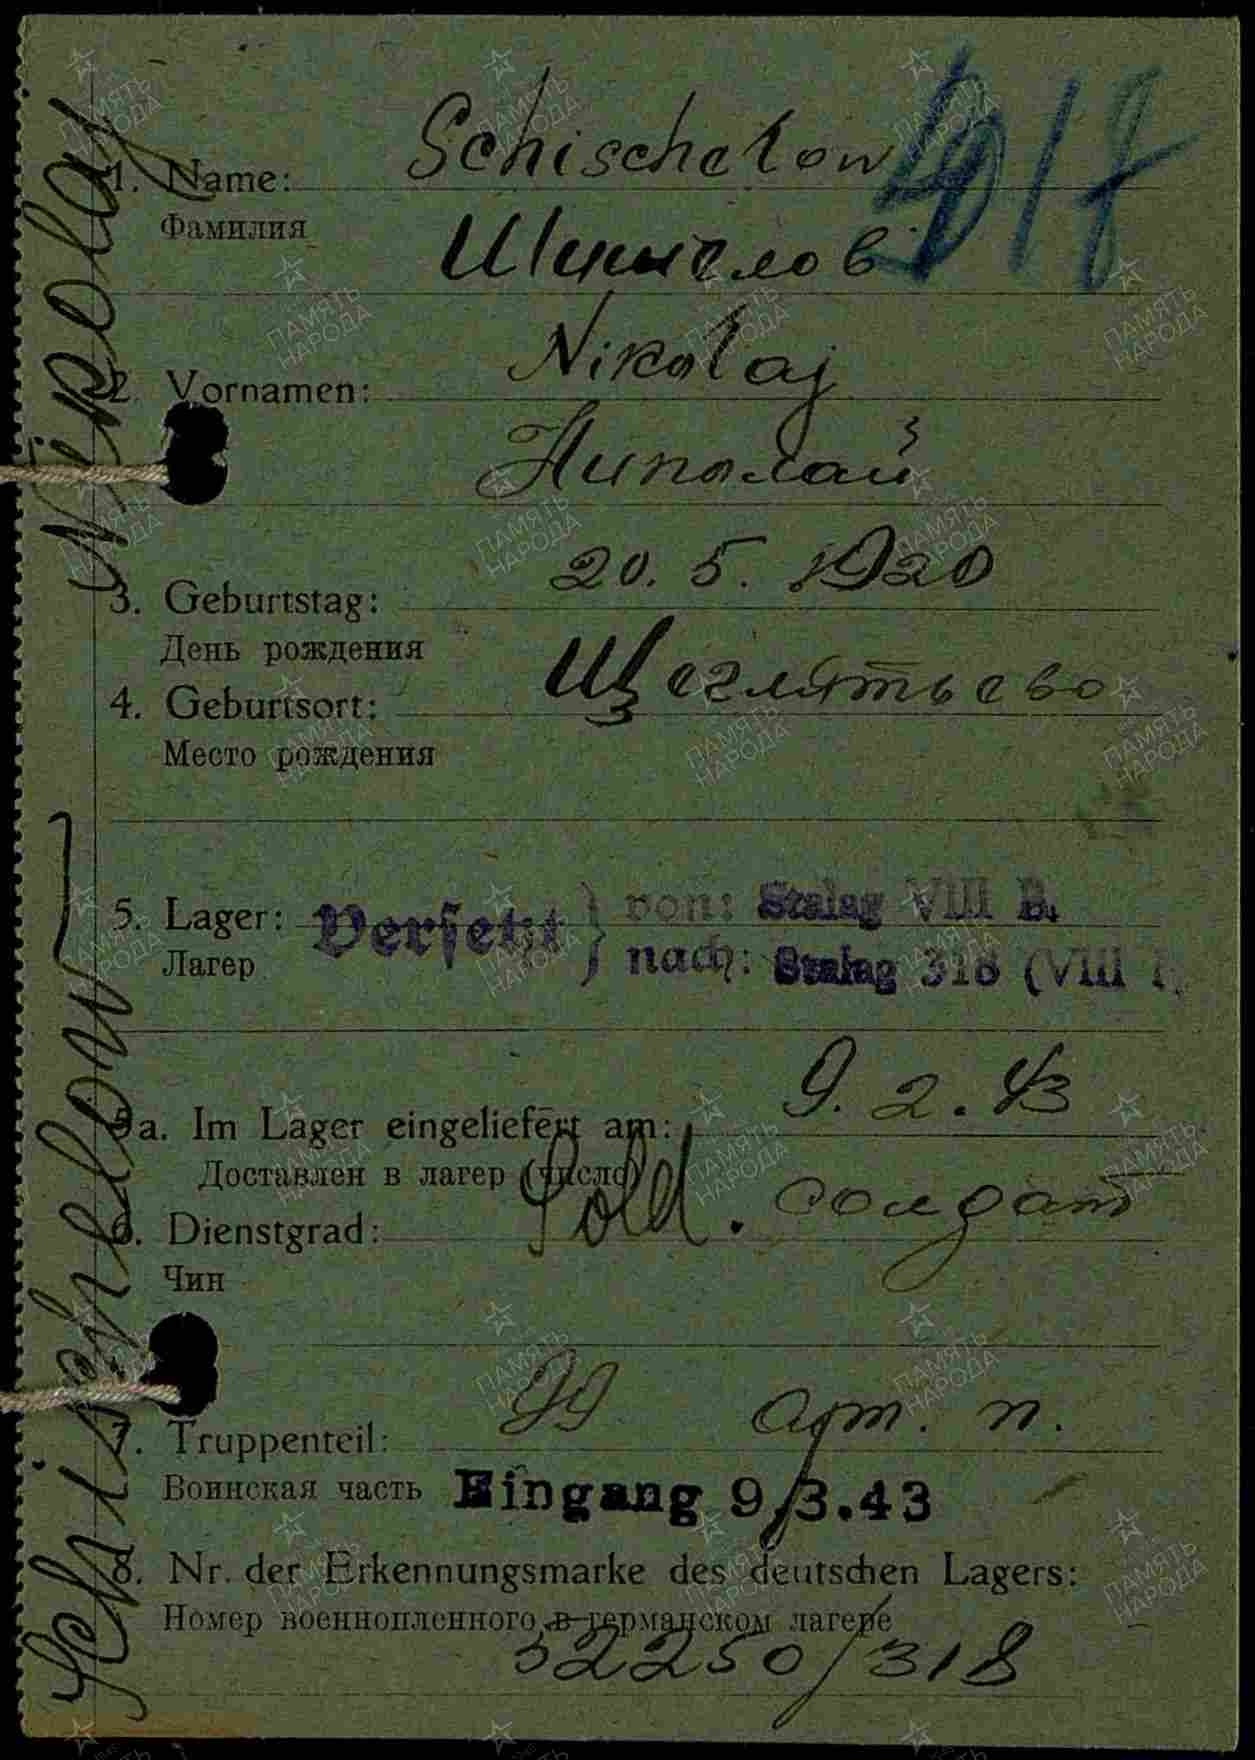 Schischelow
1. Name:
918
Фамилия
Шишелов
Nikolaj
2. Vornamen:
Николай
20. 5. 1920
3. Geburtstag:
День рождения
Щеглятьево
4. Geburtsort:
Место рождения
5. Lager: Versetzt } von: Stalag VIII B.
Лагер nach: Stalag 318 (VIII
9. 2. 43
5a. Im Lager eingeliefert am:
Доставлен в лагер (число)
Sold. солдат
6. Dienstgrad:
Чин
99 арт. п.
7. Truppenteil:
Воинская часть Eingang 9.3.43
8. Nr. der Erkennungsmarke des deutschen Lagers:
Номер военнопленного в германском лагере
32250/318
Schischelow Nikolaj
ПАМЯТЬ НАРОДА